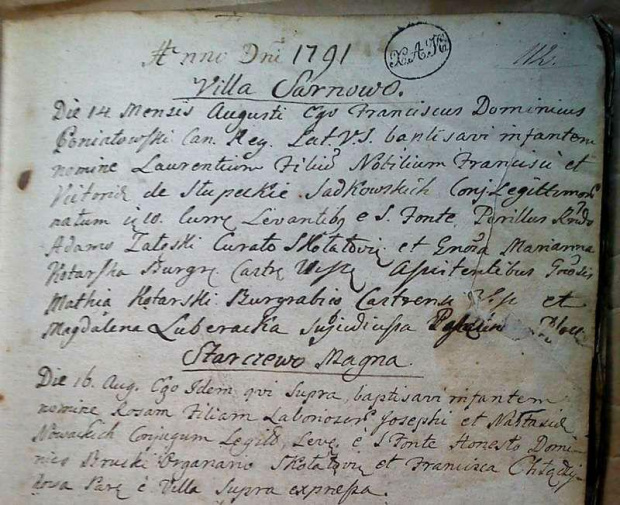 Anno Dni 1791
X.A.K.
112.
Villa Sarnowo.
Die 14 Mensis Augusti Ego Franciscus Dominicus
Poniatowski Can. Reg. Lat. V.S. baptisavi infantem
nomine Laurentium Filiū Nobilium Francisci et
Victoriæ de Słupeckie Sadkowskich Conj Legittimor
natum 10. curr Levantibq e S. Fonte Perillus Rndo
Adamo Zaleski Curato Skołatoviē et Gnosa Marianna
Kotarska Burgrę Castrę Assistentibus
Mathia Kotarski Burgrabio Castrensi et
Magdalena Luberacka
Starczewo Magna.
Die 16. Aug. Ego Idem qvi Supra, baptisavi infantem
nomine Rosam Filiam Josephi et
Nowackich Conjugum Legitt, Levę. e S. Fonte Honesto Domi-
nico Bruski Organario Skołatovię et Francisca
kova e Villa Supra expressa.